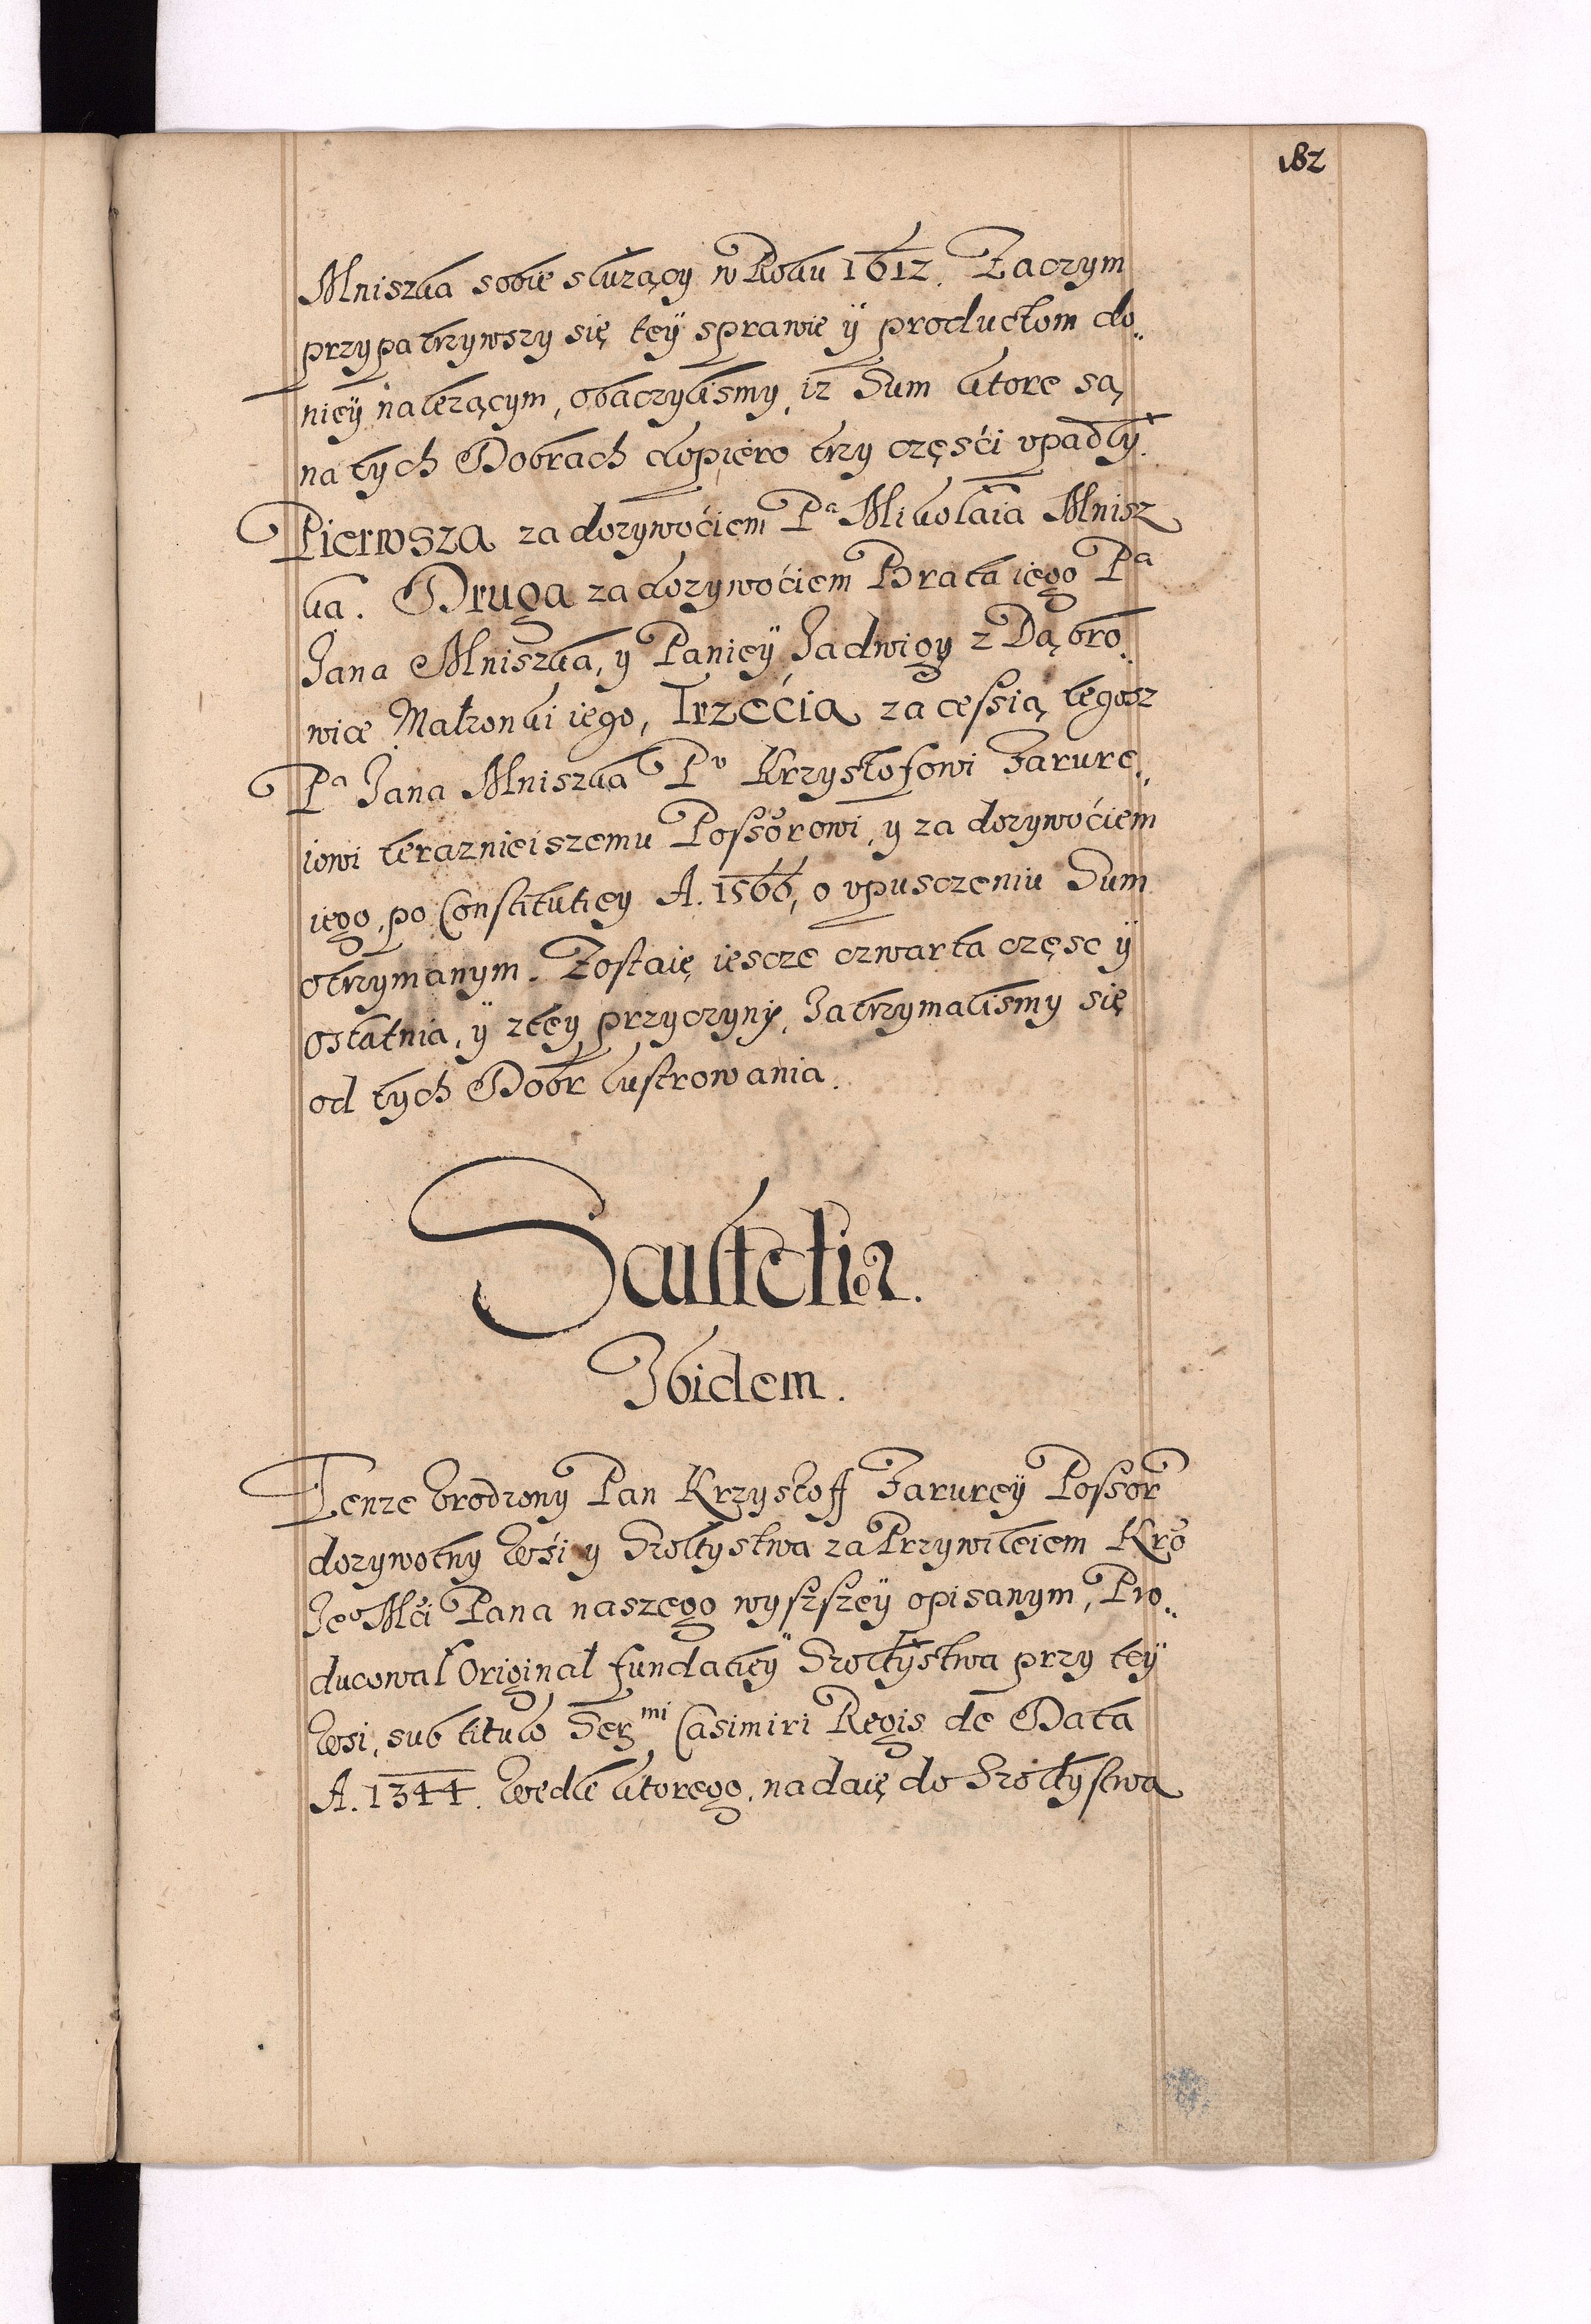 182
Mniszka sobie służący w Roku 1612. Zaczym
przypatrzywszy się teÿ sprawie ÿ productom do„
nieÿ należącym, obaczyliśmy, iż Sum ktore są
na tych Dobrach dopiero trzy częśći vpadły.
Pierwsza za dożywoćiem Pᵃ Mikołaia Mnisz
ka. Druga za dożywoćiem Brata iego Pᵃ
Jana Mniszka, y Panieÿ Jadwigy z Dąbro„
wice Małżonki iego, Trzećia za cessią tegosz
Pᵃ Jana Mniszka Pᵘ Krzysztofowi Jarure„
iowi teraznieiszemu Possorowi, y za dożywoćiem
iego, po Constitutiey A. 1566, o vpusczeniu Sum
otrzymanym. Zostaię iescze czwarta częsc ÿ
ostatnia, ÿ ztey przyczyny, Zatrzymaliśmy się
od tych Dobr lustrowania.
Scultetia.
Ibidem.
Tenze Vrodzony Pan Krzysztoff Jarureÿ Possor
dozywotny Wśi y Szołtystwa za Przywileiem Kro
Jeº Mći Pana naszego wyszszeÿ opisanym, Pro„
ducował Originał fundatieÿ Szołtystwa przy teÿ
Wsi, sub titulo Serᵐⁱ Casimiri Regis de Data
A. 1344. Wedle ktorego, nadaię do Szołtystwa